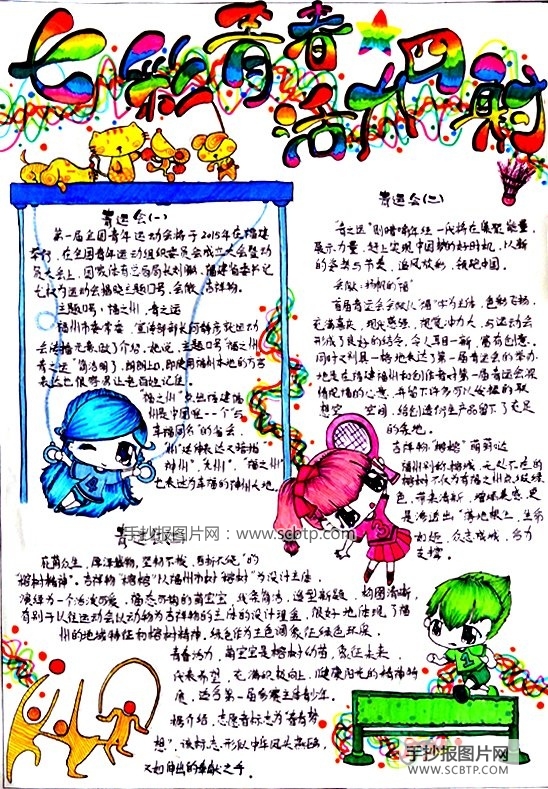 七彩青春
活力四射
青运会(一)
第一届全国青年运动会将于2015年在福建
举行,在全国青年运动组织委员会成立大会暨动
员大会上,国家体育总局长刘鹏、福建省委书记
尤权为运动会揭晓主题口号,会徽、吉祥物。
主题口号:福之州,青之运
福州市委常委、宣传部部长
会徽元素做了介绍。她说,主题口号"福之州
青之运"简洁明了,朗朗上口,即使用福州本地的方言
表达也很容易让老百姓记住。
"福之州"
州是中国唯一一个"与
幸福同名"的省会,
州"这种表达又暗指
神州","九州","福之州"
也表达为幸福的神州大地。
青运会(二)
"青之运"则暗喻年轻一代将在集聚能量,
展示力量,赶上实现中国梦的好时机,以新
的姿势与节奏,追风放彩,领跑中国。
会徽:扬帆的"福"
首届青运会会徽以"福"字为主体,色彩飞扬,
充满喜庆,现代感强,视觉冲力大,与运动会
形成了良好的结合,令人耳目一新,富有创意。
同时又别具一格地表达了第一届青运会的举办
地是在福建福州和创作者对第一届青运会浓
情祝福的心意,并留下许多可以发挥的联
想空 空间,给创造衍生产品留下了充足
的余地。
吉祥物"榕榕"萌萌哒
福州别称榕城,无处不在的
榕树不仅为有福之州
色,带来清新,增添美感,更
是渗透出"落地根生,生命
不息,众志成城,合力
支撑。
手抄报图片网:www.scbtp.com
荫蔽众生,厚泽载物,坚韧不拔,自新不已"的
"榕树精神"。吉祥物"榕榕"以福州市树"榕树"为设计主体,
演绎为一个活泼可爱、憨态可掬的萌宝宝,线条简洁,造型新颖,构图清晰,
有别于以往运动会以动物为吉祥物的主体的设计理念,很好地体现了福
州的地域特征和榕树精神,绿色作为主色调象征绿色环保,
青春活力,萌宝宝是榕树幼苗,象征未来,
代表希望,充满积极向上、健康阳光的精神特
质,适合第一届参赛主体青少年。
据介绍,志愿者标志为"青春梦
想",该标志形似中华凤头燕鸥,
又如伸出的奉献之手。
1
手抄报图片网
WWW.SCBTP.COM